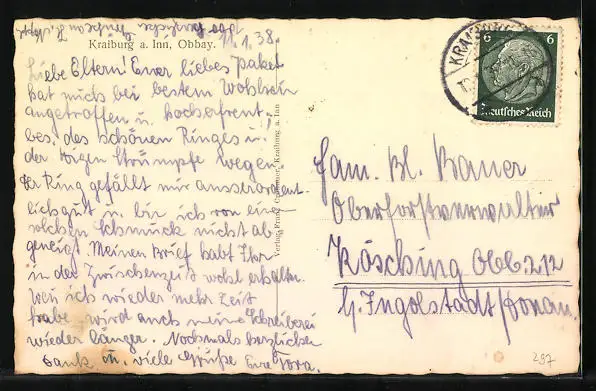 Kraiburg a. Inn, Obbay.
1.38.
Liebe Eltern! Euer liebes Paket
hat mich bei bestem Wohlsein
angetroffen u. hocherfreut,
bes. des schönen Ringes u.
der Strümpfe wegen.
Der Ring gefällt mir ausserordent-
lich gut u. bin ich von einem
solchen Schmuck nicht ab-
geneigt. Meinen Brief habt Ihr
in der Zwischenzeit wohl erhalten.
Wenn ich wieder mehr Zeit
habe wird auch meine Schreiberei
wieder länger. Nochmals herzlichen
Dank u. viele Grüße Eure
Verlag Franz Kraiburg a. Inn
KRAIBURG
6 6
Deutsches Reich
Fam. Bl. Bauer
Oberforstverwalter
Kösching 212
b. Ingolstadt/Donau.
297